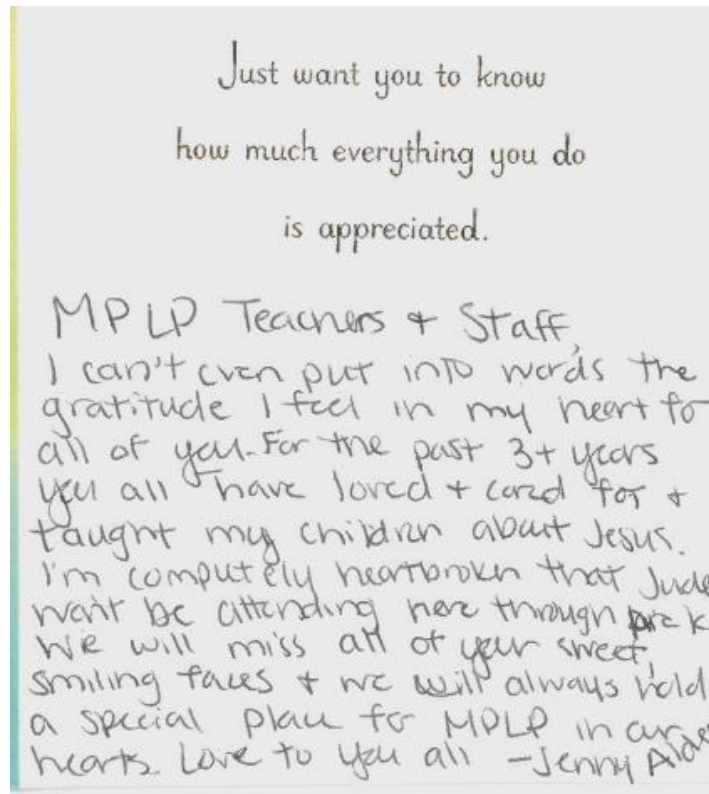 Just want you to know
how much everything you do
is appreciated.
MPLP Teachers + Staff,
I can't even put into words the
gratitude I feel in my heart fo
all of you. For the past 3+ years
you all have loved + cared for +
taught my children about Jesus.
I'm completely heartbroken that Jude
won't be attending here through pre K
We will miss all of your sweet,
smiling faces + we will always hold
a special place for MPLP in our
hearts. Love to you all - Jenny